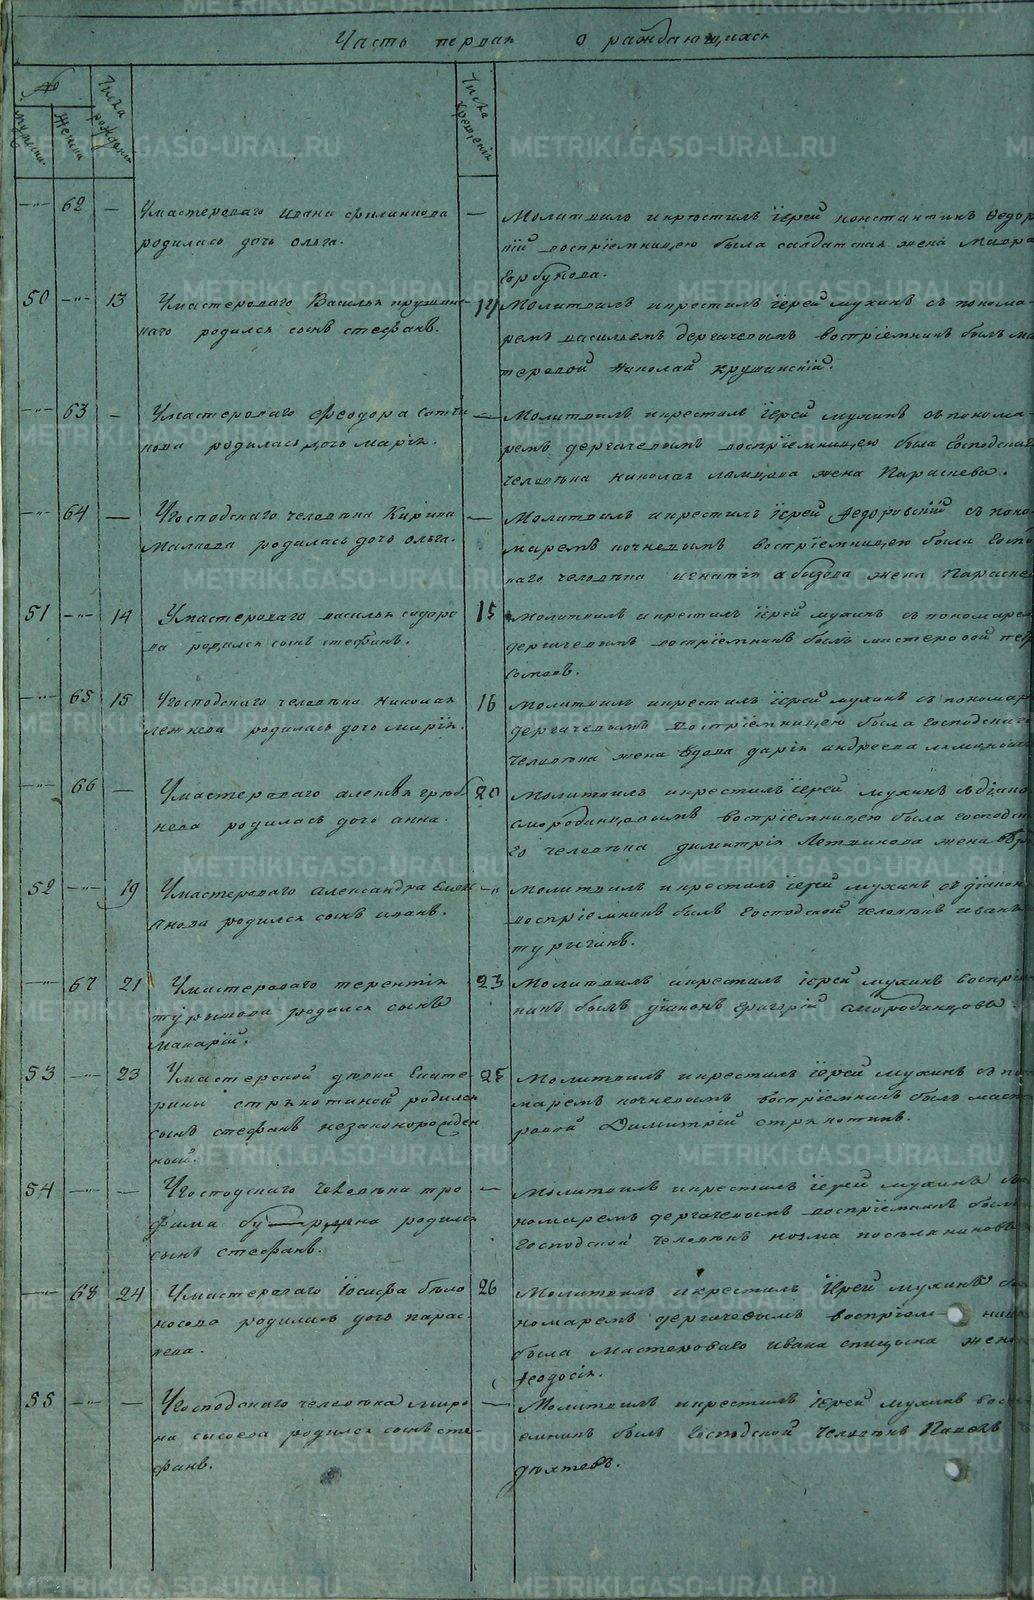 METRIKI.GASO-URAL.RU
Часть первая о раждающихся
№
Числа рождения
Числа крещенiя
мужеска.
Женска
-"- 62 —
Умастероваго Ивана Филиппова
родилась дочь Ольга.
—
Молитвилъ икрестилъ Їерей константинъ Ѳедор
кїй воспрїемницею была салдатская жена Мавра
Горбунова.
50 -"- 13
Умастероваго Василья крушин
каго родился сынъ стефанъ.
14
Молитвилъ икрестилъ їерей мухинъ съ понома-
ремъ васильемъ дергачевымъ воспрїемникъ былъ ма
теровой Николай крушинскїй.
-"- 63 —
Умастероваго Феодора
родилась дочь марiя.
—
Молитвилъ икрестилъ Їерей мухинъ съ понома-
ремъ дергачевымъ воспрїемницею была Господскаго
Человѣка николая жена Параскева.
-"- 64 —
Угосподскаго человѣка Кирила
Малаева родилась дочь ольга.
—
Молитвилъ икрестилъ їерей Ѳедоровскїй съ поно
маремъ почневымъ воспрїемницею была Госпо
каго человѣка игнатiя жена Параскев
51 -"- 14
Умастероваго василья сидоро
ва родился сынъ стефанъ.
15
Молитвилъ икрестилъ їерей мухинъ съ пономарем
дергачевымъ воспрїемникъ былъ мастеровой пет
-"- 65 15
Угосподскаго человѣка николая
родилась дочь марiя.
16
Молитвилъ икрестилъ їерей мухинъ съ пономар
дергачевымъ воспрїемницею была Господскаго
Человѣка жена вдова дарiя андреева
-"- 66 —
Умастероваго алексѣя
родилась дочь анна.
20
Молитвилъ икрестилъ їерей мухинъ съ дїако
смородинцовымъ воспрїемницею была господск
го человѣка димитрiя жена
52 -"- 19
Умастероваго александра Емел
янова родился сынъ иванъ.
-"-
Молитвилъ икрестилъ їерей мухинъ съ дїакон
воспрїемникъ былъ Господской человѣкъ иванъ
турыгинъ.
-"- 67 21
Умастероваго терентiя
родился сынъ
макарїй.
23
Молитвилъ икрестилъ їерей мухинъ воспрї
никъ былъ дїаконъ Григорїй смородинцовъ
53 -"- 23
Умастерской дѣвки Екате-
рины стрѣкотиной родился
сынъ стефанъ незаконорожден
ный.
25
Молитвилъ икрестилъ їерей мухинъ съ по
маремъ почневымъ воспрїемникъ былъ масте
ровой Димитрїй стрѣкотинъ.
54 -"- —
Угосподскаго Человѣка тро
фима родился
сынъ стефанъ.
—
Молитвилъ икрестилъ їерей мухинъ
номаремъ дергачевымъ воспрїемникъ былъ
Господской человѣкъ козма
-"- 68 24
Умастероваго Їосифа бѣло
носова родилась дочь парас-
кева.
26
Молитвилъ икрестилъ їерей мухинъ съ
номаремъ дергачевымъ воспрїем- ниц
была мастероваго ивана спицына жен
Ѳеодосiя.
55 -"- —
Угосподскаго человѣка миро
на сысоева родился сынъ сте-
фанъ.
—
Молитвилъ икрестилъ їерей мухинъ восп
емникъ былъ Господской человѣкъ Павелъ
дѣхтевъ.